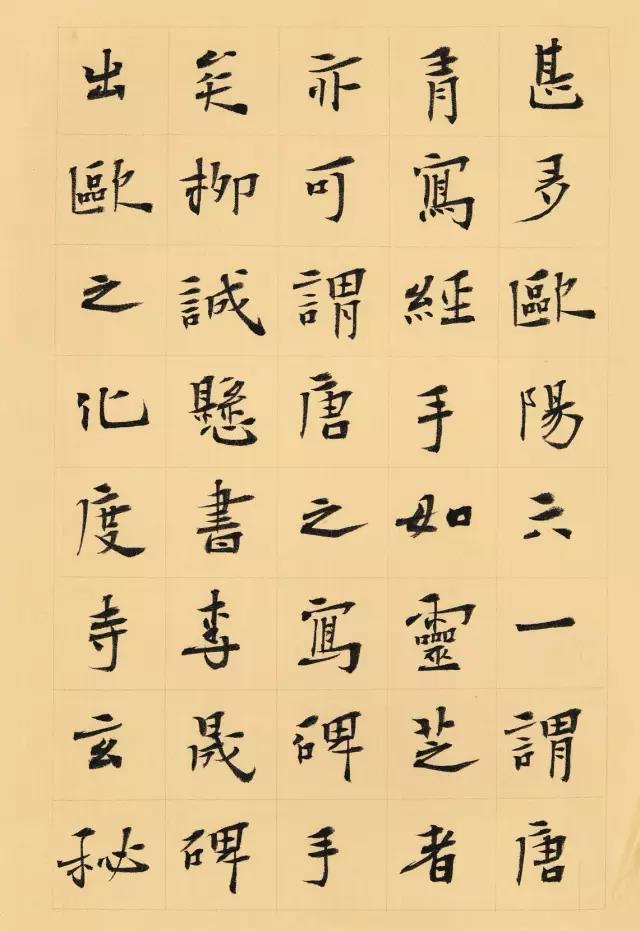 甚多歐陽六一謂唐
有寫經手如靈芝者
亦可謂唐之寫碑手
矣柳誠懸書李晟碑
出歐之化度寺玄秘